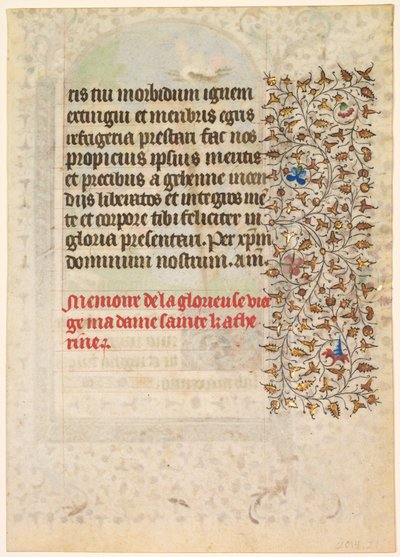 ris tui morbidum ignem
extingui et menbris egris
refrigeria prestari fac nos
propicius ipsius meritis
et precibus a gehenne incen
diis liberatos et integros me
te et corpore tibi feliciter in
gloria presentari. Per xpm
dominum nostrum. Am.
Memoire de la glorieuse vier
ge ma dame sainte kathe
rine